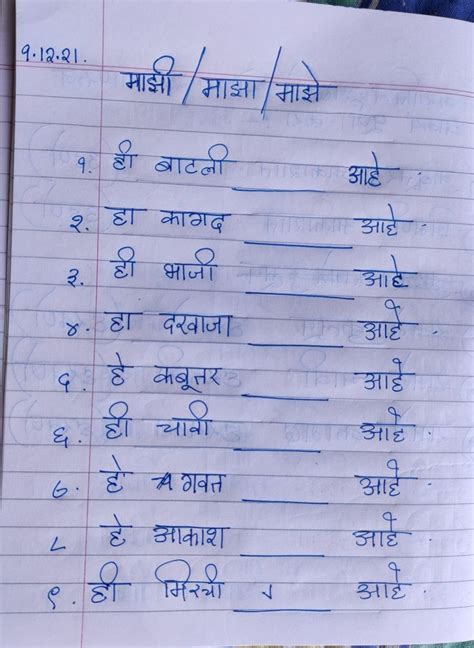 १.12.21.
माझी / माझा / माझे
१. ही बाटली ______ आहे.
२. हा कागद ______ आहे.
३. ही भाजी ______ आहे
४. हा दरवाजा ______ आहे.
५. हे कबूतर ______ आहे
६. ही चावी ______ आहे.
७. हे गवत ______ आहे.
८ हे आकाश ______ आहे.
९. ही मिरची ______ आहे.